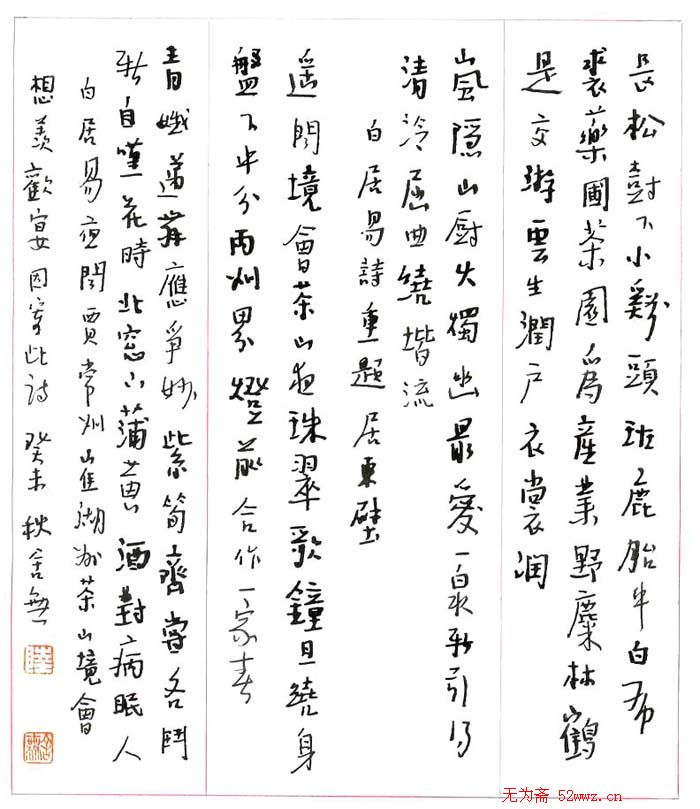 長松樹下小谿頭班鹿胎巾白布
裘藥圃茶園為產業野麋林鶴
是交游雲生澗戶衣裳潤
嵐隱山廚火燭幽最愛一泉新引得
清泠屈曲繞堦流
白居易詩重題居東壁
遥聞境會茶山夜珠翠歌鐘旦繞身
盤下中分兩州界燈前合作一家春
青娥遞舞應爭妙紫筍齊嘗各鬥
新自嘆花時北窓下蒲黃酒對病眠人
白居易夜聞賈常州崔湖州茶山境會
想羨歡宴因寄此詩 癸未秋舍無
无为斋 52wwz.cn